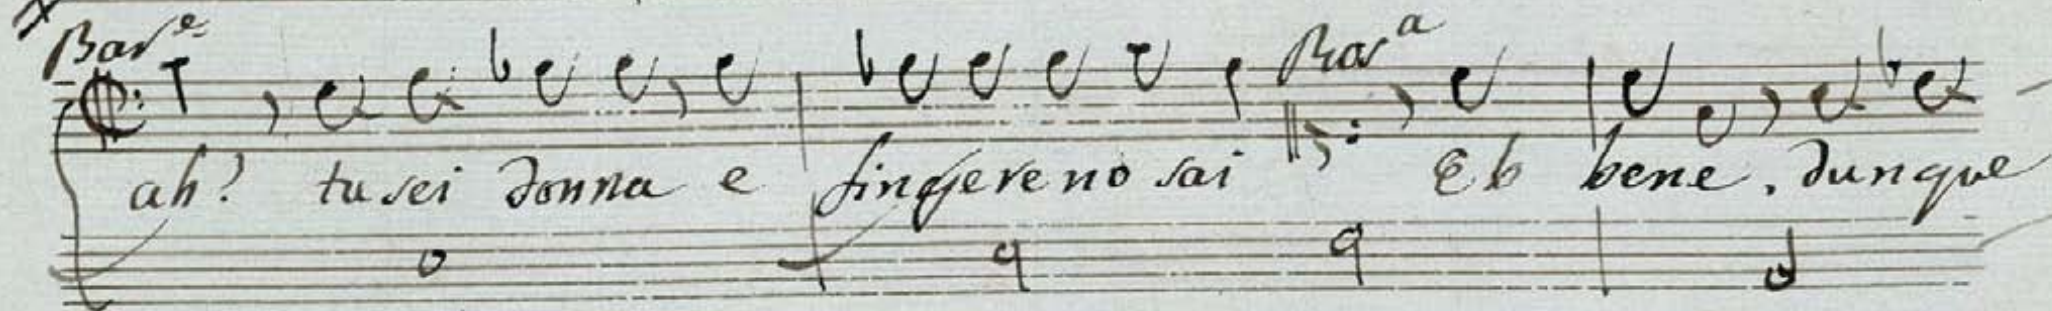 Bar.e Bar.a
ah? tu sei donna e fingere no sai Eh bene. dunque